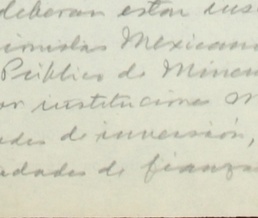 deberan estar ins
ionistas Mexicano
Público de Miner
or instituciones M
ades de inversión,
edades de finanza